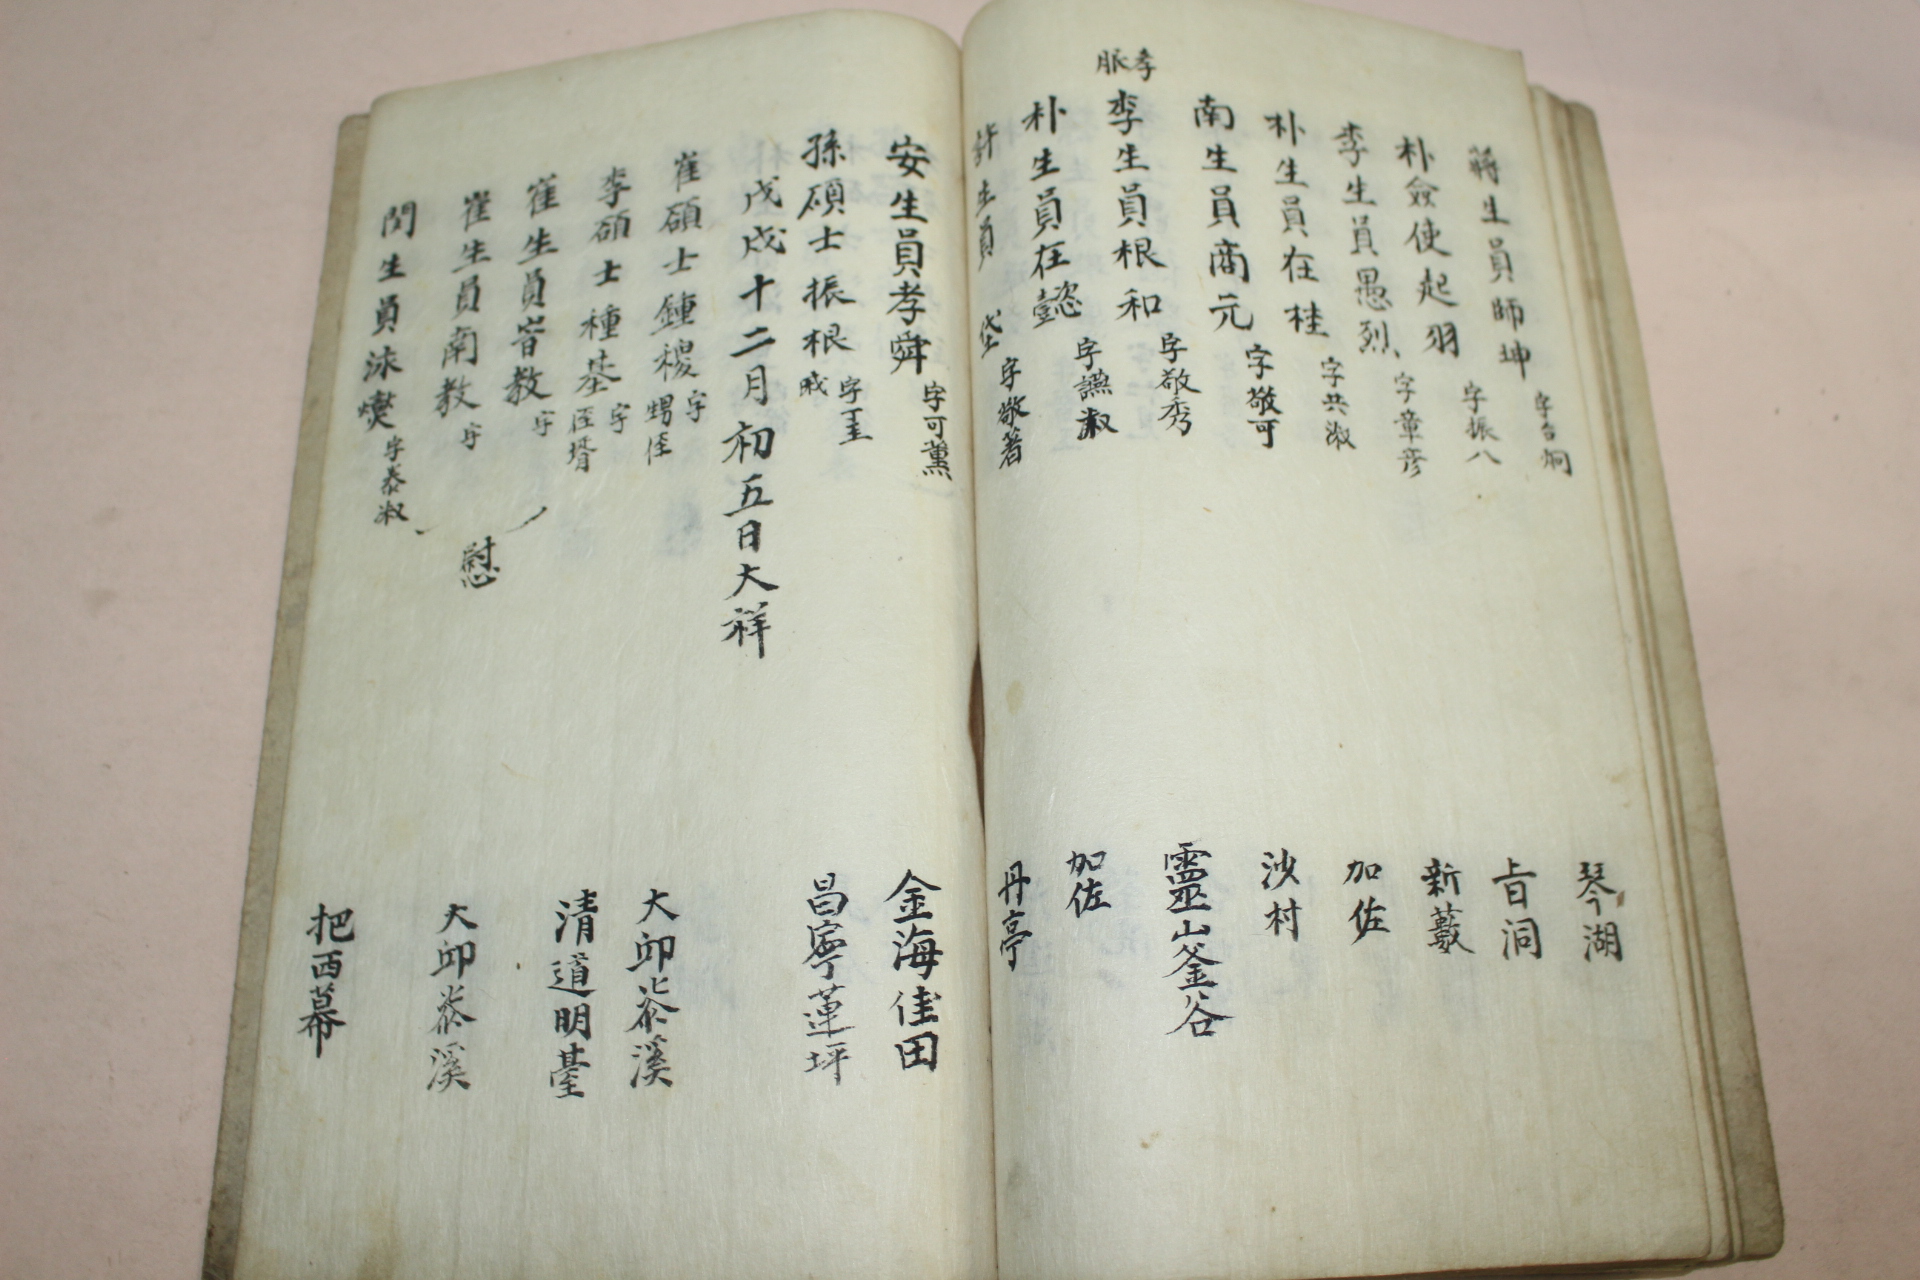 蔣生員師坤 字台炯 琴湖
朴僉使起羽 字振八 旨洞
李生員愚烈 字章彦 新藪
朴生員在桂 字共淑 加佐
南生員商元 字敬可 沙村
孝脈
李生員根和 字敬秀 靈山釜谷
朴生員在懿 字讌淑 加佐
許生員垈 字敬著 丹亭
安生員孝舜 字可薰 金海佳田
孫碩士振根 字 戚 昌寧蓮坪
戊戌十二月初五日大祥
崔碩士鍾稷 字 甥侄 大邱
李碩士種基 字 侄壻 清道明臺
崔生員 教 字
崔生員南教 字 大邱 溪
慰
閔生員泳 字泰淑 把西幕